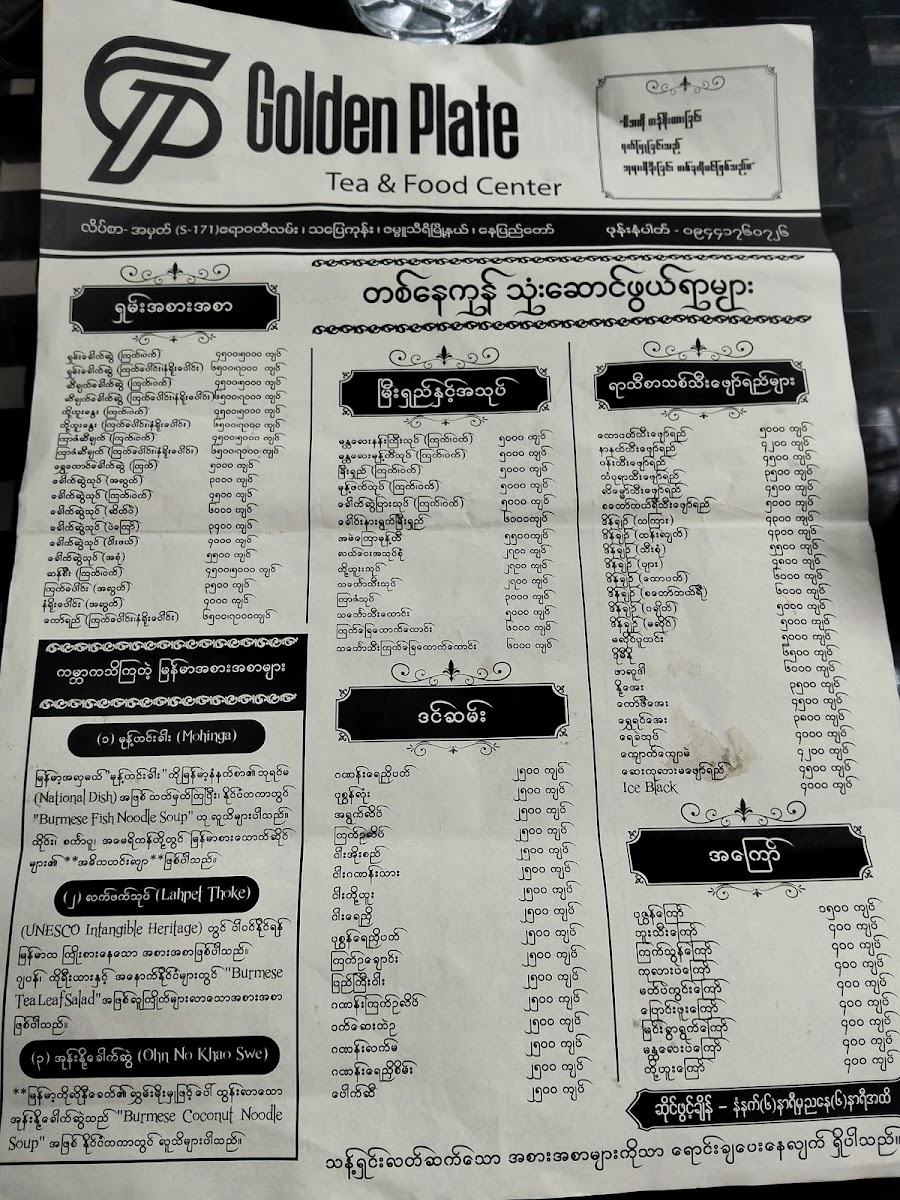 Golden Plate
Tea & Food Center
လိပ်စာ- အမှတ် (S-171)ဧရာဝတီလမ်း ၊ သပြေကုန်း ၊ ဇမ္ဗူသီရိမြို့နယ် ၊ နေပြည်တော် ဖုန်းနံပါတ် - ၀၉၄၄၁၇၆၀၇၂၆
တစ်နေကုန် သုံးဆောင်ဖွယ်ရာများ
ရှမ်းအစားအစာ
ရှမ်းခေါက်ဆွဲ (ကြက်၊ဝက်) ၄၅၀၀၊၅၀၀၀ ကျပ်
ရှမ်းခေါက်ဆွဲ (ကြက်ပေါင်း၊နံရိုးပေါင်း) ၆၅၀၀၊၇၀၀၀ ကျပ်
ဆီချက်ခေါက်ဆွဲ (ကြက်၊ဝက်) ၄၅၀၀၊၅၀၀၀ ကျပ်
ဆီချက်ခေါက်ဆွဲ (ကြက်ပေါင်း၊နံရိုးပေါင်း) ၆၅၀၀၊၇၀၀၀ ကျပ်
တို့ဟူးနွေး (ကြက်၊ဝက်) ၄၅၀၀၊၅၀၀၀ ကျပ်
တို့ဟူးနွေး (ကြက်ပေါင်း၊နံရိုးပေါင်း) ၆၅၀၀၊၇၀၀၀ ကျပ်
ကြာဇံဆီချက် (ကြက်၊ဝက်) ၄၅၀၀၊၅၀၀၀ ကျပ်
ကြာဇံဆီချက် (ကြက်ပေါင်း၊နံရိုးပေါင်း) ၆၅၀၀၊၇၀၀၀ ကျပ်
ရွှေတောင်ခေါက်ဆွဲ (ကြက်) ၅၀၀၀ ကျပ်
ခေါက်ဆွဲသုပ် (အလွတ်) ၃၀၀၀ ကျပ်
ခေါက်ဆွဲသုပ် (ကြက်၊ဝက်) ၄၅၀၀ ကျပ်
ခေါက်ဆွဲသုပ် (ဆိတ်) ၆၀၀၀ ကျပ်
ခေါက်ဆွဲသုပ် (ပဲကြော်) ၃၄၀၀ ကျပ်
ခေါက်ဆွဲသုပ် (ငါးဖယ်) ၄၀၀၀ ကျပ်
ခေါက်ဆွဲသုပ် (အစုံ) ၅၅၀၀ ကျပ်
ဆန်စီး (ကြက်၊ဝက်) ၄၅၀၀၊၅၀၀၀ ကျပ်
ကြက်ပေါင်း (အလွတ်) ၃၅၀၀ ကျပ်
နံရိုးပေါင်း (အလွတ်) ၄၀၀၀ ကျပ်
ကော်ရည် (ကြက်ပေါင်း၊နံရိုးပေါင်း) ၆၅၀၀၊၇၀၀၀ကျပ်
ကမ္ဘာကသိကြတဲ့ မြန်မာအစားအစာများ
(၁) မုန့်ဟင်းခါး (Mohinga)
မြန်မာ့အလှမယ် "မုန့်ဟင်းခါး" ကိုမြန်မာ့နံနက်စာ၏ဘုရင်မ
(National Dish) အဖြစ် သတ်မှတ်ကြပြီး၊ နိုင်ငံတကာတွင်
"Burmese Fish Noodle Soup" ဟု လူသိများပါသည်။
ထိုင်း၊ စင်္ကာပူ၊ အမေရိကန်တို့တွင် မြန်မာစားသောက်ဆိုင်
များ၏ **အဓိကဟင်းလျာ**ဖြစ်ပါသည်။
(၂) လက်ဖက်သုပ် (Lahpet Thoke)
(UNESCO Intangible Heritage) တွင် ပါဝင်နိုင်ရန်
မြန်မာက ကြိုးစားနေသော အစားအစာဖြစ်ပါသည်။
ဂျပန်၊ ကိုရီးယားနှင့် အနောက်နိုင်ငံများတွင် "Burmese
Tea Leaf Salad" အဖြစ် လူကြိုက်များလာသောအစားအစာ
ဖြစ်ပါသည်။
(၃) အုန်းနို့ခေါက်ဆွဲ (Ohn No Khao Swe)
**မြန်မာ့ကိုလိုနီခေတ်၏ လွှမ်းမိုးမှုဖြင့် ပေါ် ထွန်းလာသော
အုန်းနို့ခေါက်ဆွဲသည် "Burmese Coconut Noodle
Soup" အဖြစ် နိုင်ငံတကာတွင် လူသိများပါသည်။
မြီးရှည်နှင့်အသုပ်
မန္တလေးနန်းကြီးသုပ် (ကြက်၊ဝက်) ၅၀၀၀ ကျပ်
မန္တလေးမုန့်တီသုပ် (ကြက်၊ဝက်) ၅၀၀၀ ကျပ်
မြီးရှည် (ကြက်၊ဝက်) ၅၀၀၀ ကျပ်
မုန့်ဖက်သုပ် (ကြက်၊ဝက်) ၅၀၀၀ ကျပ်
ခေါက်ဆွဲပြားသုပ် (ကြက်၊ဝက်) ၅၀၀၀ ကျပ်
ခေါင်းနားရွက်မြီးရှည် ၆၀၀၀ကျပ်
အမဲကြောမုန့်တီ ၅၅၀၀ကျပ်
လက်ဝေးအသုပ်စုံ ၂၇၀၀ ကျပ်
တို့ဟူးသုပ် ၂၇၀၀ ကျပ်
သင်္ဘောသီးသုပ် ၂၇၀၀ ကျပ်
ကြာဇံသုပ် ၃၀၀၀ ကျပ်
သင်္ဘောသီးထောင်း ၅၀၀၀ ကျပ်
ကြက်ခြေထောက်ထောင်း ၆၀၀၀ ကျပ်
သင်္ဘောသီးကြက်ခြေထောက်ထောင်း ၆၀၀၀ ကျပ်
ဒင်ဆမ်း
ဂဏန်းရေညှိပတ် ၂၅၀၀ ကျပ်
ပုစွန်ရုံး ၂၅၀၀ ကျပ်
အရွက်လိပ် ၂၅၀၀ ကျပ်
ကြက်ဥလိပ် ၂၅၀၀ ကျပ်
ငါးအိုးစည် ၂၅၀၀ ကျပ်
ငါးဂဏန်းသား ၂၅၀၀ ကျပ်
ငါးတို့ဟူး ၂၅၀၀ ကျပ်
ငါးရေညှိ ၂၅၀၀ ကျပ်
ပုစွန်ရေညှိပတ် ၂၅၀၀ ကျပ်
ကြက်ဥချောင်း ၂၅၀၀ ကျပ်
ဖြည်ကြီးငါး ၂၅၀၀ ကျပ်
ဂဏန်းကြက်ဥလိပ် ၂၅၀၀ ကျပ်
ဝက်ဆေးဘဲဥ ၂၅၀၀ ကျပ်
ဂဏန်းလက်မ ၂၅၀၀ ကျပ်
ဂဏန်းရေညှိစိမ်း ၂၅၀၀ ကျပ်
ပေါက်ဆီ ၂၅၀၀ ကျပ်
ရာသီစာသစ်သီးဖျော်ရည်များ
ထောပတ်သီးဖျော်ရည် ၅၀၀၀ ကျပ်
နာနတ်သီးဖျော်ရည် ၄၂၀၀ ကျပ်
ပန်းသီးဖျော်ရည် ၄၅၀၀ ကျပ်
သံပုရာသီးဖျော်ရည် ၃၅၀၀ ကျပ်
လိမ္မော်သီးဖျော်ရည် ၄၅၀၀ ကျပ်
စတော်ဘယ်ရီသီးဖျော်ရည် ၅၀၀၀ ကျပ်
ဒိန်ချဉ် (သကြား) ၄၃၀၀ ကျပ်
ဒိန်ချဉ် (ထန်းလျက်) ၄၃၀၀ ကျပ်
ဒိန်ချဉ် (သီးစုံ) ၅၅၀၀ ကျပ်
ဒိန်ချဉ် (ပျား) ၄၈၀၀ ကျပ်
ဒိန်ချဉ် (ထောပတ်) ၆၀၀၀ ကျပ်
ဒိန်ချဉ် (စတော်ဘယ်ရီ) ၆၀၀၀ ကျပ်
ဒိန်ချဉ် (ဂျယ်လီ) ၅၀၀၀ ကျပ်
ဒိန်ချဉ် (မဆိုင်) ၅၀၀၀ ကျပ်
မဆိုင်ပူတင်း ၅၀၀၀ ကျပ်
ဒိုမိနို ၆၅၀၀ ကျပ်
ဖာလူဒါ ၆၀၀၀ ကျပ်
နို့အေး ၃၅၀၀ ကျပ်
ကော်ဖီအေး ၄၅၀၀ ကျပ်
ရွှေရင်အေး ၃၈၀၀ ကျပ်
ရေခဲသုပ် ၄၀၀၀ ကျပ်
ကျောက်ကျောမဲ ၄၂၀၀ ကျပ်
ဆေးကုလားမဖျော်ရည် ၄၅၀၀ ကျပ်
Ice Black ၄၀၀၀ ကျပ်
အကြော်
ပုဇွန်ကြော် ၁၅၀၀ ကျပ်
ဘူးသီးကြော် ၄၀၀ ကျပ်
ကြက်သွန်ကြော် ၄၀၀ ကျပ်
ကုလားပဲကြော် ၄၀၀ ကျပ်
မတ်ပဲကွင်းကြော် ၄၀၀ ကျပ်
ပြောင်းဖူးကြော် ၄၀၀ ကျပ်
မြင်းခွာရွက်ကြော် ၄၀၀ ကျပ်
မန္တလေးပဲကြော် ၄၀၀ ကျပ်
တို့ဟူးကြော် ၄၀၀ ကျပ်
ဆိုင်ဖွင့်ချိန် – နံနက်(၆)နာရီမှညနေ(၆)နာရီအထိ
သန့်ရှင်းလတ်ဆက်သော အစားအစာများကိုသာ ရောင်းချပေးနေလျက် ရှိပါသည်။